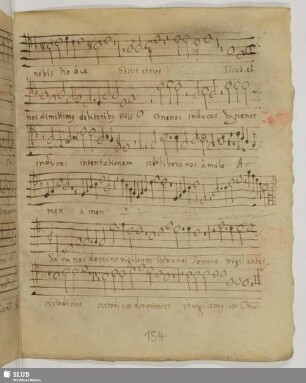 nobis ho die Sicut et nos Sicut et
nos dimittimus debitoribus nr̄is Et ne nos inducas Et ne nos
inducas intentationem sed libera nos à malo A
men a men
Salva nos domine vigilantes salva nos domine vigilantes
custodi nos custodi nos dormientes ut vigilemus in Chri
154
SLUB
Wir führen Wissen.